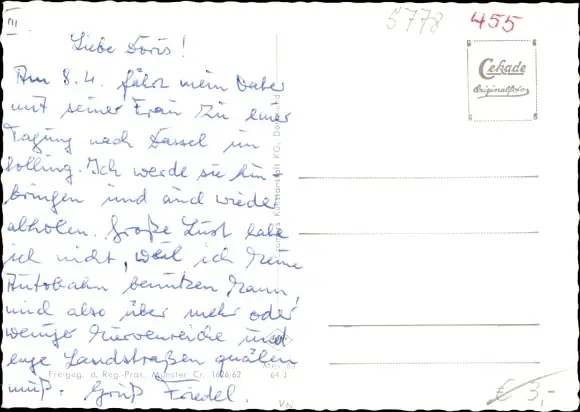 III
5778 455
Liebe Doris!
Am 8.4. fährt mein Vater
mit seiner Frau zu einer
Tagung nach Dassel im
Solling. Ich werde sie hin-
bringen und auch wieder
abholen. Große Lust habe
ich nicht, weil ich keine
Autobahn benutzen kann,
mich also über mehr oder
weniger kurvenreiche und
enge Landstraßen quälen
muß. Gruß Friedel.
Cekade
Originalfoto
Kunstanstalt KG, Do
Freigeg. d. Reg.-Präs. Münster Cr. 1626/62
64 J
€ 3,-